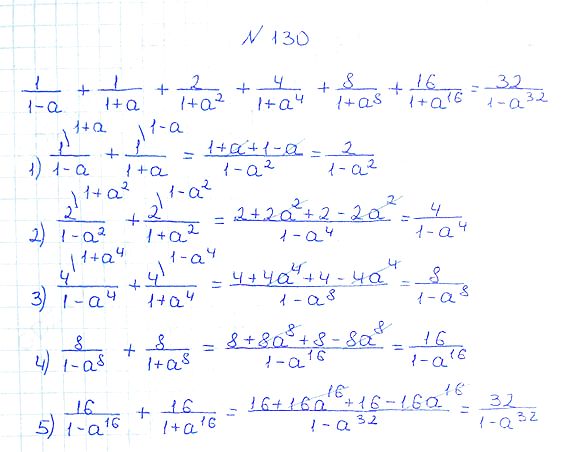 № 130
1/(1-a) + 1/(1+a) + 2/(1+a²) + 4/(1+a⁴) + 8/(1+a⁸) + 16/(1+a¹⁶) = 32/(1-a³²)
1) 1\1+a/(1-a) + 1\1-a/(1+a) = (1+a+1-a)/(1-a²) = 2/(1-a²)
2) 2\1+a²/(1-a²) + 2\1-a²/(1+a²) = (2+2a²+2-2a²)/(1-a⁴) = 4/(1-a⁴)
3) 4\1+a⁴/(1-a⁴) + 4\1-a⁴/(1+a⁴) = (4+4a⁴+4-4a⁴)/(1-a⁸) = 8/(1-a⁸)
4) 8/(1-a⁸) + 8/(1+a⁸) = (8+8a⁸+8-8a⁸)/(1-a¹⁶) = 16/(1-a¹⁶)
5) 16/(1-a¹⁶) + 16/(1+a¹⁶) = (16+16a¹⁶+16-16a¹⁶)/(1-a³²) = 32/(1-a³²)